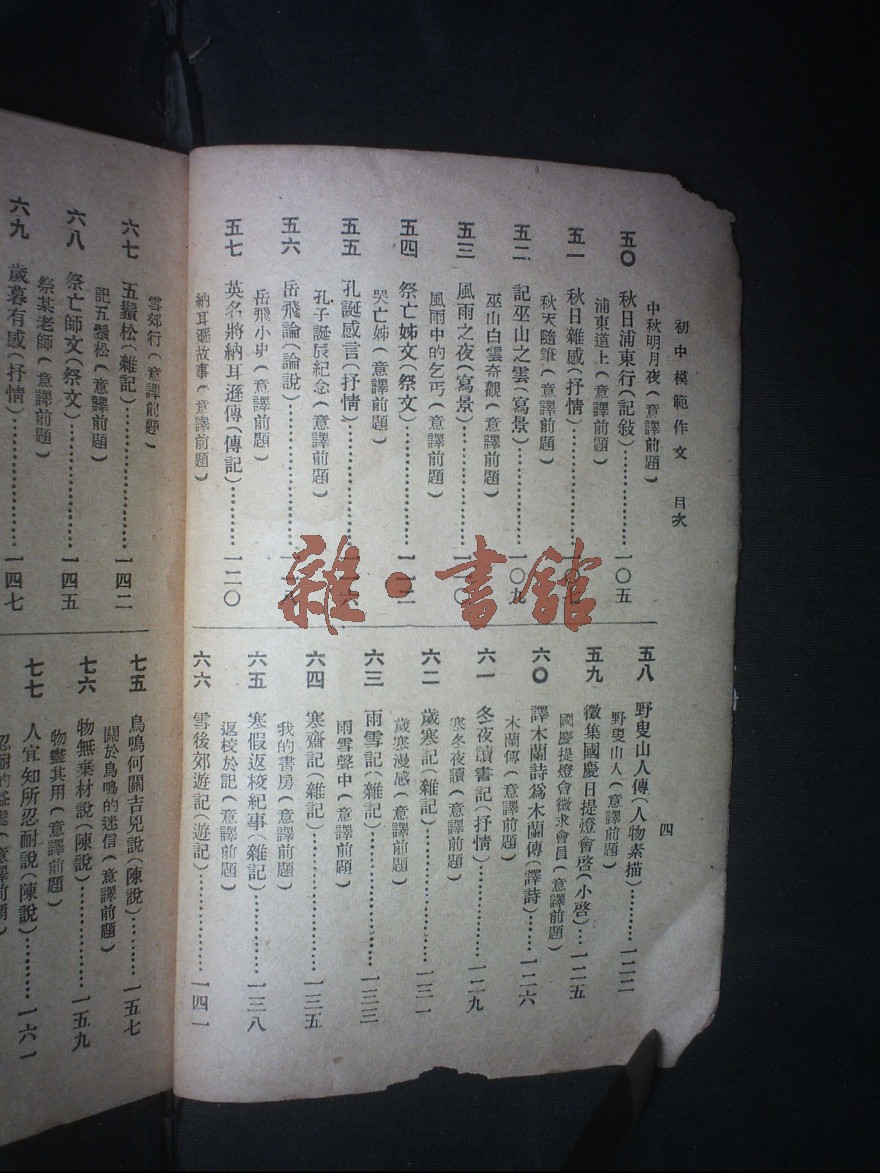 初中模範作文　目次
中秋明月夜（意譯前題）
五〇　秋日浦東行（記敍）…………一〇五
浦東道上（意譯前題）
五一　秋日雜感（抒情）…………
秋天隨筆（意譯前題）
五二　記巫山之雲（寫景）…………一〇九
巫山白雲奇觀（意譯前題）
五三　風雨之夜（寫景）…………
風雨中的乞丐（意譯前題）
五四　祭亡姊文（祭文）…………
哭亡姊（意譯前題）
五五　孔誕感言（抒情）…………
孔子誕辰紀念（意譯前題）
五六　岳飛論（論說）…………
岳飛小史（意譯前題）
五七　英名將納耳遜傳（傳記）…………一二〇
納耳遜故事（意譯前題）
四
五八　野叟山人傳（人物素描）…………一二二
野叟山人（意譯前題）
五九　徵集國慶日提燈會啓（小啓）…………一二五
國慶提燈會徵求會員（意譯前題）
六〇　譯木蘭詩爲木蘭傳（譯詩）…………一二六
木蘭傳（意譯前題）
六一　冬夜讀書記（抒情）…………一二九
寒冬夜讀（意譯前題）
六二　歲寒記（雜記）…………一三一
歲寒漫感（意譯前題）
六三　雨雪記（雜記）…………一三三
雨雪聲中（意譯前題）
六四　寒齋記（雜記）…………一三五
我的書房（意譯前題）
六五　寒假返校紀事（雜記）…………一三八
返校於記（意譯前題）
六六　雪後郊遊記（遊記）…………一四一
雪郊行（意譯前題）
六七　五鬚松（雜記）…………一四二
記五鬚松（意譯前題）
六八　祭亡師文（祭文）…………一四五
祭某老師（意譯前題）
六九　歲暮有感（抒情）…………一四七
七五　鳥鳴何關吉兇說（陳說）…………一五七
關於鳥鳴的迷信（意譯前題）
七六　物無棄材說（陳說）…………一五九
物盡其用（意譯前題）
七七　人宜知所忍耐說（陳說）…………一六一
雜·書館